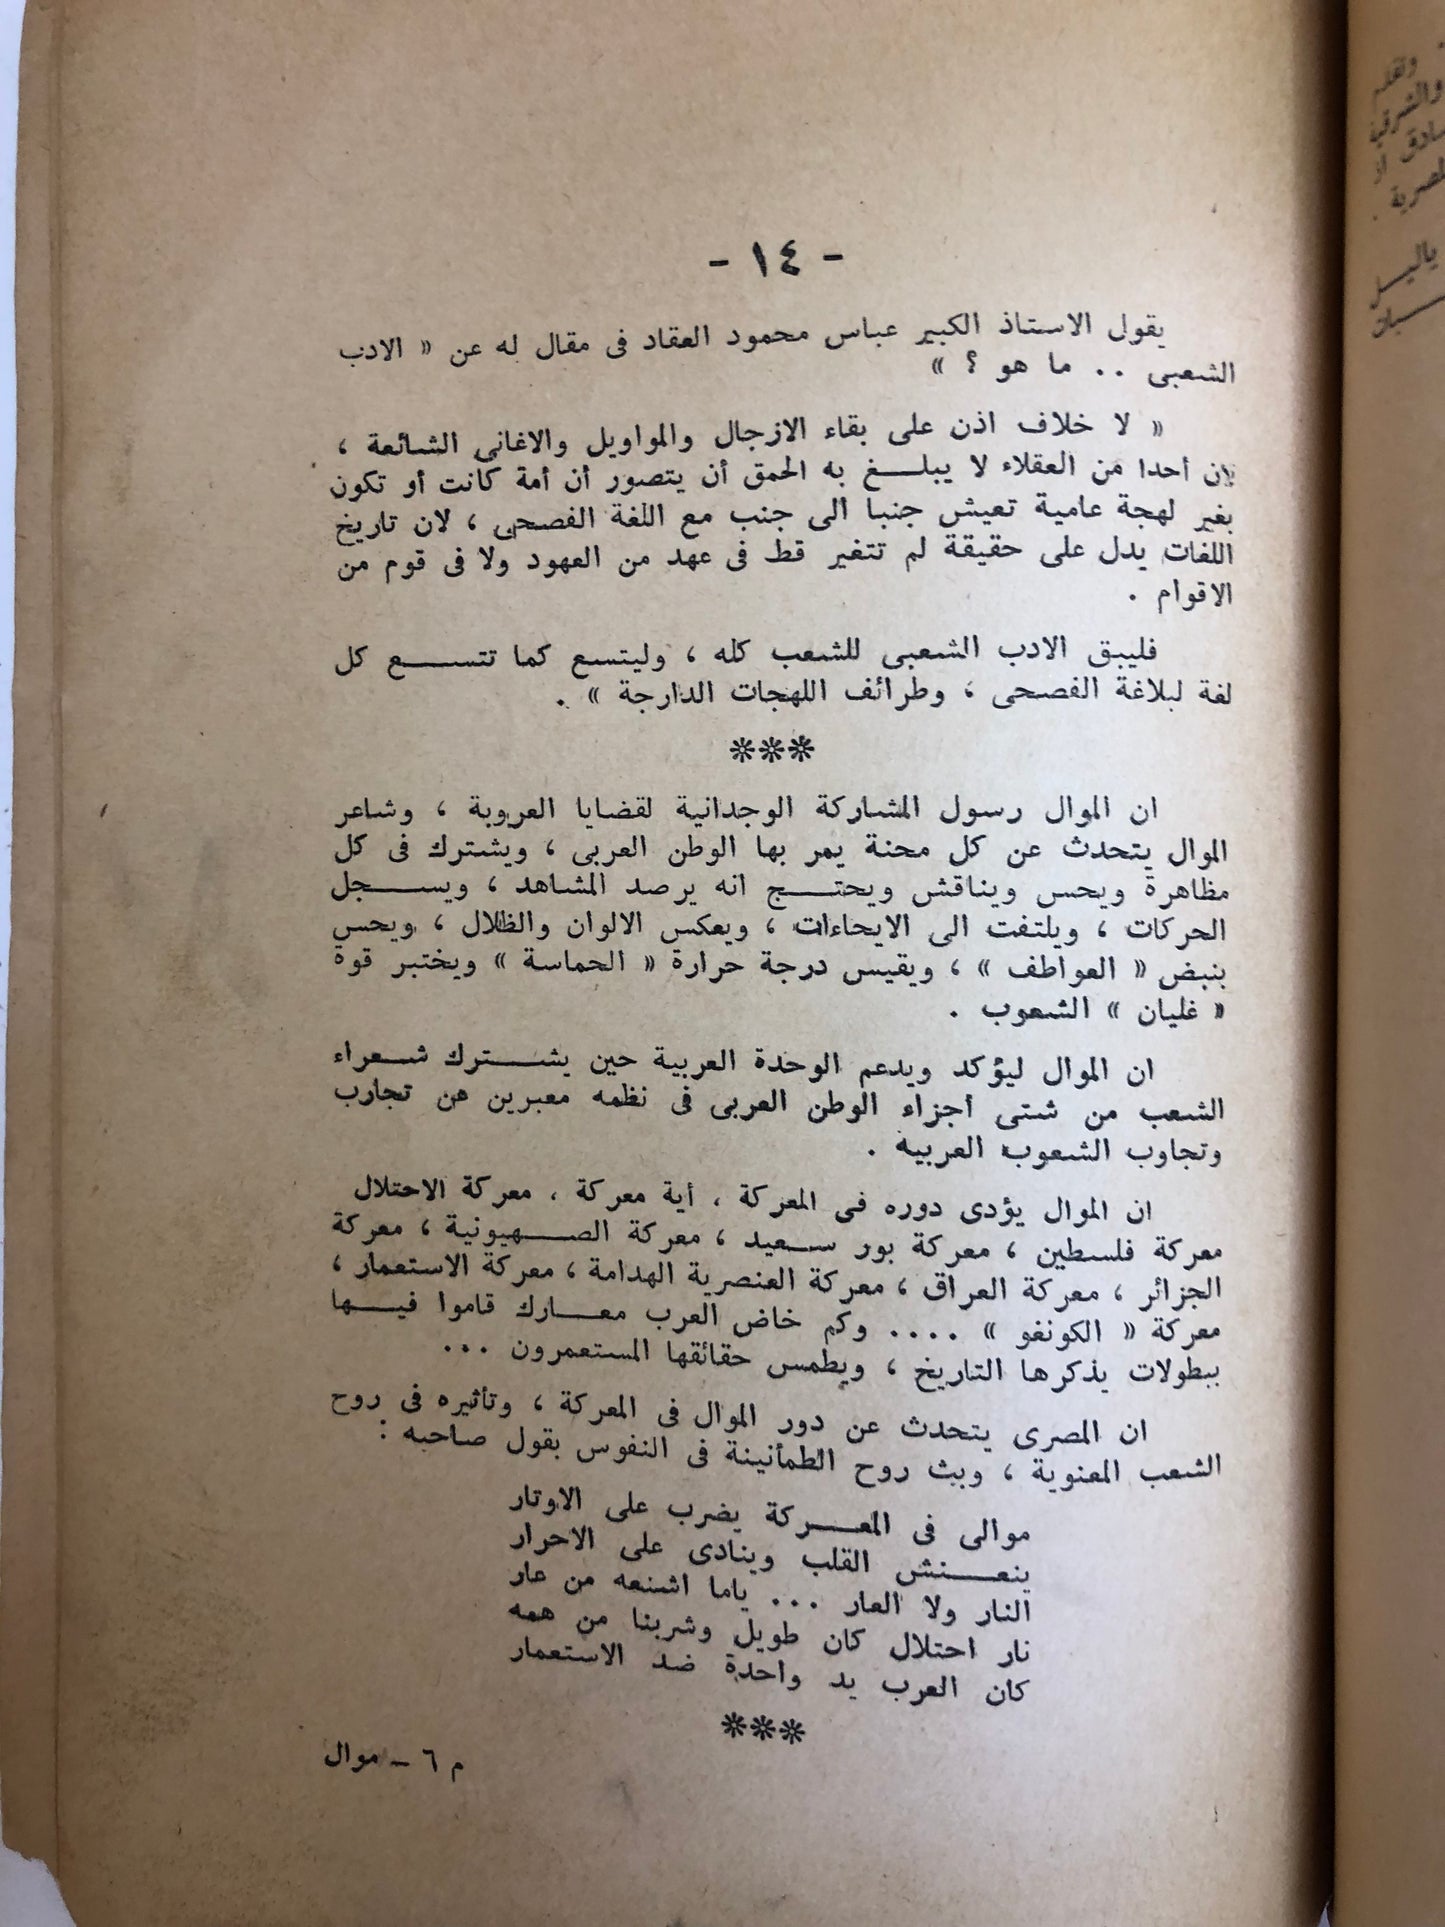 - ١٤ -
يقول الاستاذ الكبير عباس محمود العقاد فى مقال له عن « الادب
الشعبى . . ما هو ؟ »
« لا خلاف اذن على بقاء الازجال والمواويل والاغانى الشائعة ،
لان أحدا من العقلاء لا يبلغ به الحمق أن يتصور أن أمة كانت أو تكون
بغير لهجة عامية تعيش جنبا الى جنب مع اللغة الفصحى ، لان تاريخ
اللغات يدل على حقيقة لم تتغير قط فى عهد من العهود ولا فى قوم من
الاقوام .
فليبق الادب الشعبى للشعب كله ، وليتسع كما تتسع كل
لغة لبلاغة الفصحى ، وطرائف اللهجات الدارجة » .
***
ان الموال رسول المشاركة الوجدانية لقضايا العروبة ، وشاعر
الموال يتحدث عن كل محنة يمر بها الوطن العربى ، ويشترك فى كل
مظاهرة ويحس ويناقش ويحتج انه يرصد المشاهد ، ويسجل
الحركات ، ويلتفت الى الايحاءات ، ويعكس الالوان والظلال ، ويحس
بنبض « العواطف » ، ويقيس درجة حرارة « الحماسة » ويختبر قوة
« غليان » الشعوب .
ان الموال ليؤكد ويدعم الوحدة العربية حين يشترك شعراء
الشعب من شتى أجزاء الوطن العربى فى نظمه معبرين عن تجارب
وتجاوب الشعوب العربيه .
ان الموال يؤدى دوره فى المعركة ، أية معركة ، معركة الاحتلال
معركة فلسطين ، معركة بور سعيد ، معركة الصهيونية ، معركة
الجزائر ، معركة العراق ، معركة العنصرية الهدامة ، معركة الاستعمار ،
معركة « الكونغو » .... وكم خاض العرب معارك قاموا فيها
ببطولات يذكرها التاريخ ، ويطمس حقائقها المستعمرون ...
ان المصرى يتحدث عن دور الموال فى المعركة ، وتأثيره فى روح
الشعب المعنوية ، وبث روح الطمأنينة فى النفوس بقول صاحبه :
موالى فى المعركة يضرب على الاوتار
ينعنش القلب وينادى على الاحرار
النار ولا العار ... ياما اشنعه من عار
نار احتلال كان طويل وشربنا من همه
كان العرب يد واحدة ضد الاستعمار
***
م ٦ - موال
والشرقية
ياليل